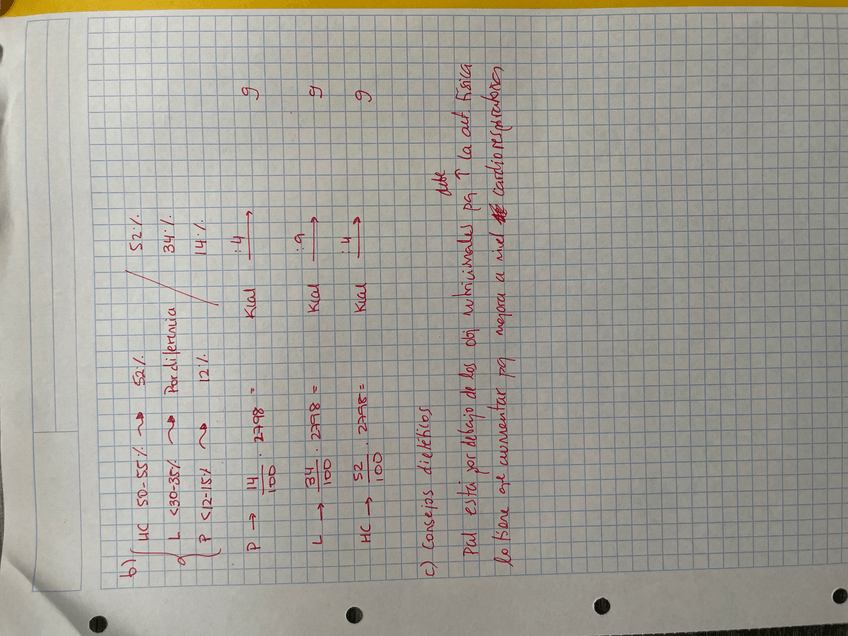 b) HC 50-55% ⇝ 52% / 52%
L <30-35% ⇝ Por diferencia 34%
P <12-15% ⇝ 12% 14%
P → 14/100 · 2798 = Kcal :4 → g
L → 34/100 · 2798 = Kcal :9 → g
HC → 52/100 · 2798 = Kcal :4 → g
c) Consejos dietéticos
debe
Pal está por debajo de los obj nutricionales pq ↑ la act física
lo tiene que aumentar pq mejora a nivel cardiorespiratorio